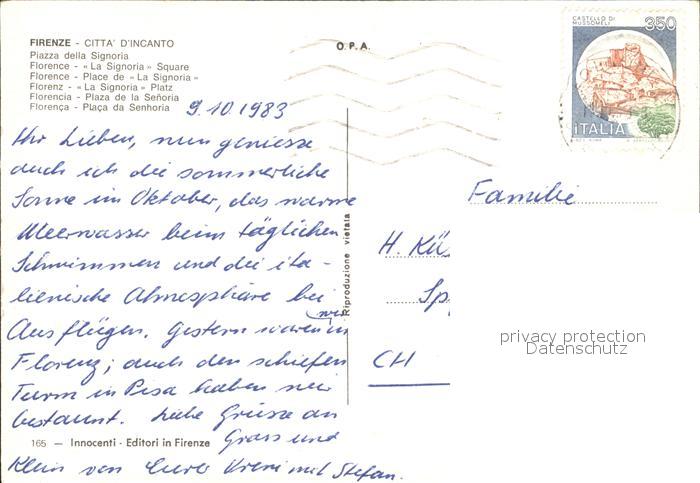 FIRENZE - CITTA' D'INCANTO
Piazza della Signoria
Florence - «La Signoria» Square
Florence - Place de «La Signoria»
Florenz - «La Signoria» Platz
Florencia - Plaza de la Señoria
Florença - Plaça da Senhoria
O.P.A.
CASTELLO DI
MUSSOMELI
350
ITALIA
9.10.1983
Ihr Lieben, nun geniesse
auch ich die sommerliche
Sonne im Oktober, das warme
Meerwasser beim täglichen
Schwimmen und die ita-
lienische Atmosphäre bei
Ausflügen. Gestern waren wir in
Florenz; auch den schiefen
Turm in Pisa haben wir
bestaunt. Liebe Grüsse an
Gross und
Klein von Eurer Vreni mit Stefan.
165 - Innocenti - Editori in Firenze
Riproduzione vietata
Familie
H. Kä
Sp
CH
privacy protection
Datenschutz